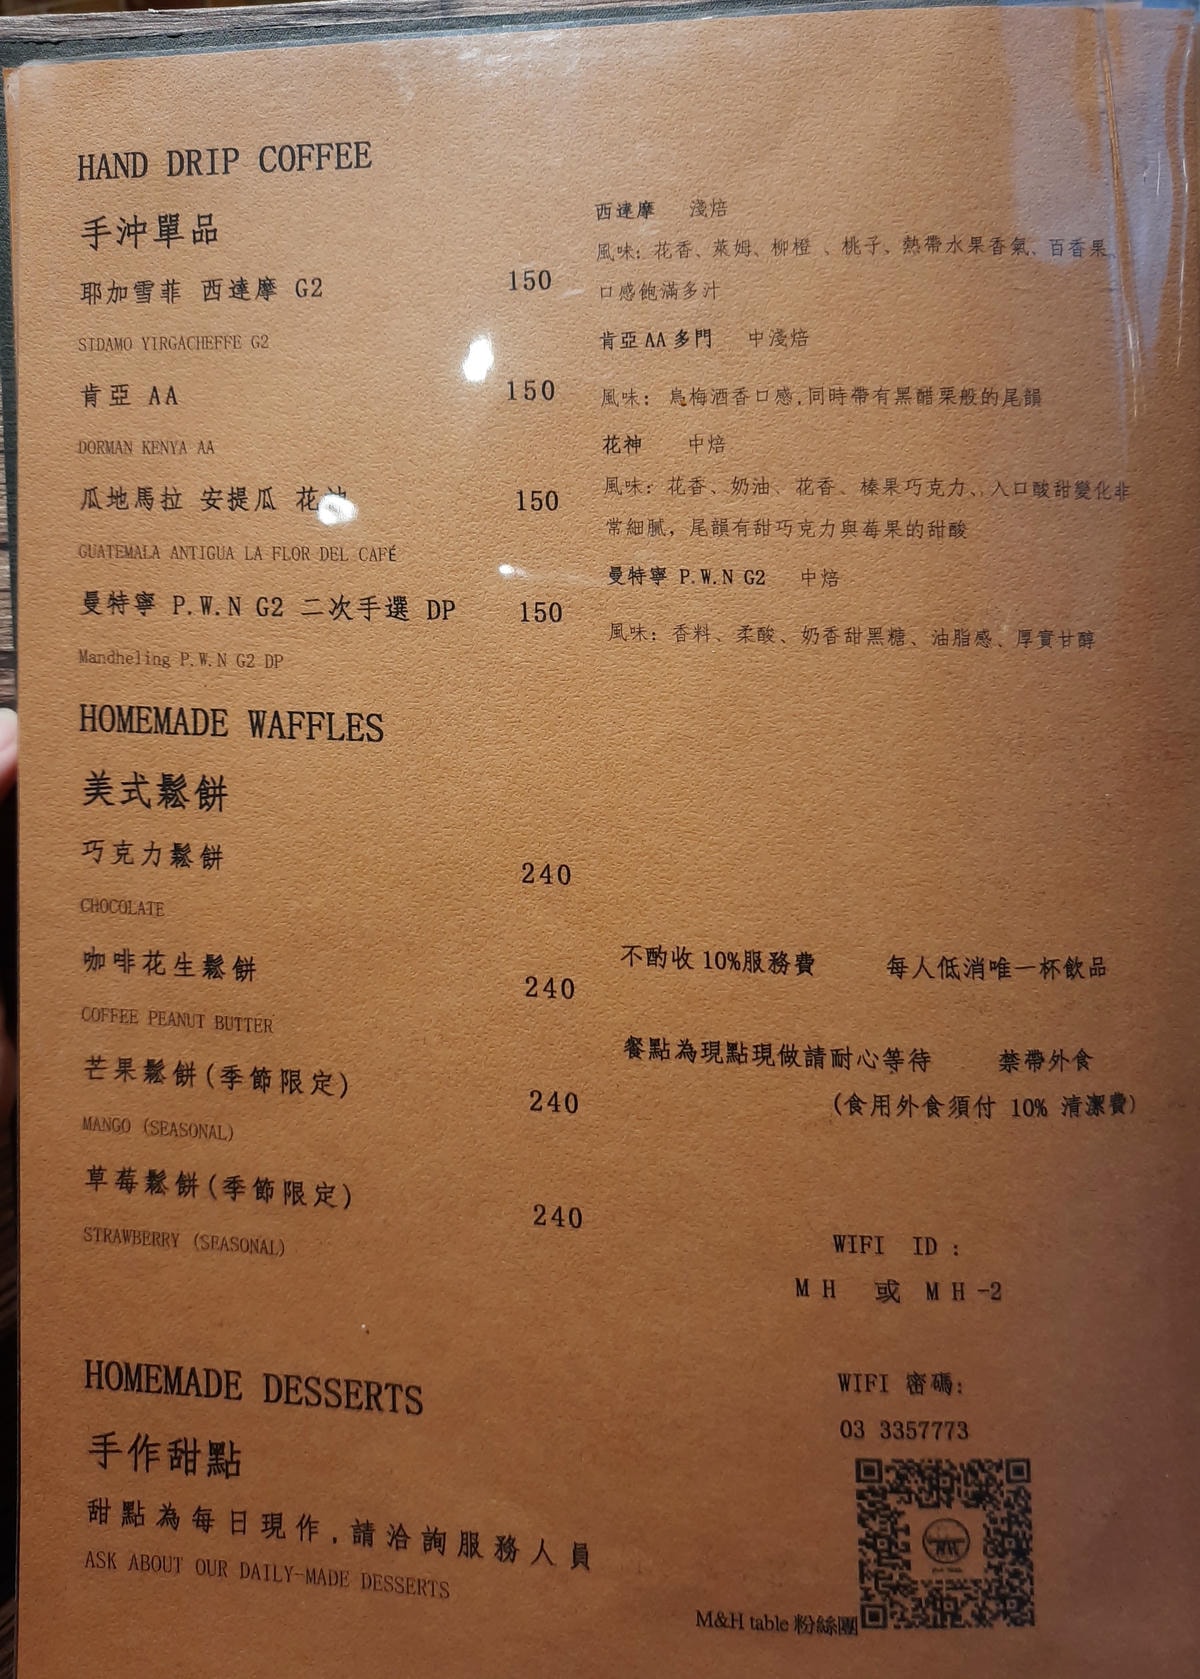 HAND DRIP COFFEE
手沖單品
耶加雪菲 西達摩 G2 150
SIDAMO YIRGACHEFFE G2
肯亞 AA 150
DORMAN KENYA AA
瓜地馬拉 安提瓜 花神 150
GUATEMALA ANTIGUA LA FLOR DEL CAFÉ
曼特寧 P.W.N G2 二次手選 DP 150
Mandheling P.W.N G2 DP
西達摩 淺焙
風味: 花香、萊姆、柳橙 、桃子、熱帶水果香氣、百香果、
口感飽滿多汁
肯亞 AA 多門 中淺焙
風味: 烏梅酒香口感,同時帶有黑醋栗般的尾韻
花神 中焙
風味: 花香、奶油、花香、榛果巧克力、、入口酸甜變化非
常細膩, 尾韻有甜巧克力與莓果的甜酸
曼特寧 P.W.N G2 中焙
風味: 香料、柔酸、奶香甜黑糖、油脂感、厚實甘醇
HOMEMADE WAFFLES
美式鬆餅
巧克力鬆餅 240
CHOCOLATE
咖啡花生鬆餅 240
COFFEE PEANUT BUTTER
芒果鬆餅(季節限定) 240
MANGO (SEASONAL)
草莓鬆餅(季節限定) 240
STRAWBERRY (SEASONAL)
不酌收 10%服務費 每人低消唯一杯飲品
餐點為現點現做請耐心等待 禁帶外食
(食用外食須付 10% 清潔費)
WIFI ID :
M H 或 M H -2
WIFI 密碼:
03 3357773
HOMEMADE DESSERTS
手作甜點
甜點為每日現作,請洽詢服務人員
ASK ABOUT OUR DAILY-MADE DESSERTS
M&H table 粉絲團